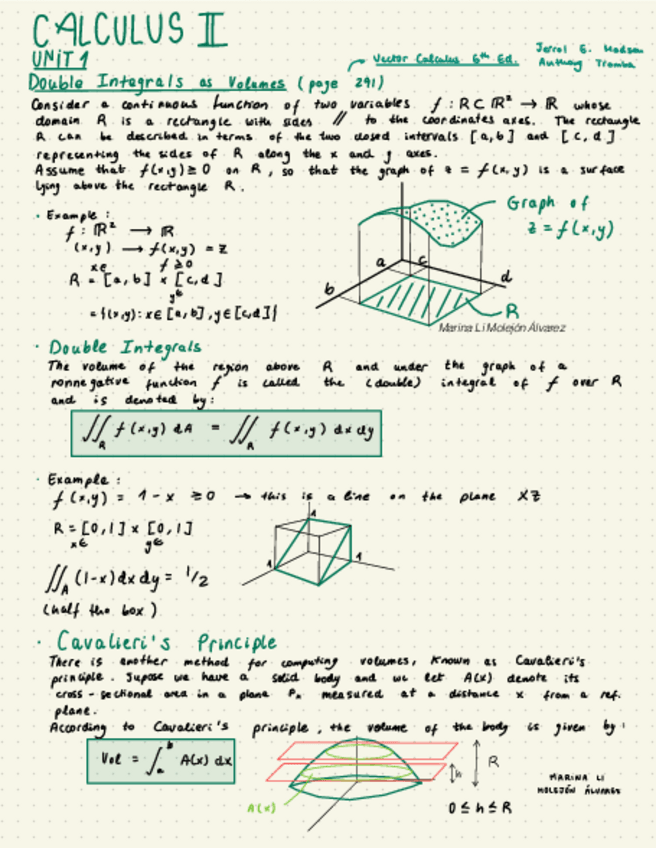 CALCULUS II
UNIT 1
Vector Calculus 6th Ed.
Jerrol E. Madsen
Anthony Tromba
Double Integrals as Volumes (page 291)
Consider a continuous function of two variables f : R ⊂ ℝ² → ℝ whose
domain R is a rectangle with sides // to the coordinates axes. The rectangle
R can be described in terms of the two closed intervals [a,b] and [c,d]
representing the sides of R along the x and y axes.
Assume that f(x,y) ≥ 0 on R, so that the graph of z = f(x,y) is a surface
lying above the rectangle R.
· Example :
f : ℝ² → ℝ
(x,y) → f(x,y) = z
f ≥ 0
R = [a,b] x [c,d]
x∈ y∈
= {(x,y): x ∈ [a,b], y ∈ [c,d]}
Graph of
z = f(x,y)
a
c
d
b
R
Marina Li Molejón Álvarez
· Double Integrals
The volume of the region above R and under the graph of a
nonnegative function f is called the (double) integral of f over R
and is denoted by:
∬_R f(x,y) dA = ∬_R f(x,y) dx dy
· Example :
f(x,y) = 1 - x ≥ 0 → this is a line on the plane XZ
R = [0,1] x [0,1]
x∈ y∈
1
1
1
∬_A (1-x) dx dy = 1/2
(half the box)
· Cavalieri's Principle
There is another method for computing volumes, known as Cavalieri's
principle. Supose we have a solid body and we let A(x) denote its
cross-sectional area in a plane Pₓ measured at a distance x from a ref.
plane.
According to Cavalieri's principle, the volume of the body is given by:
Vol = ∫_a^b A(x) dx
R
h
A(x)
0 ≤ h ≤ R
MARINA LI
MOLEJÓN ÁLVAREZ